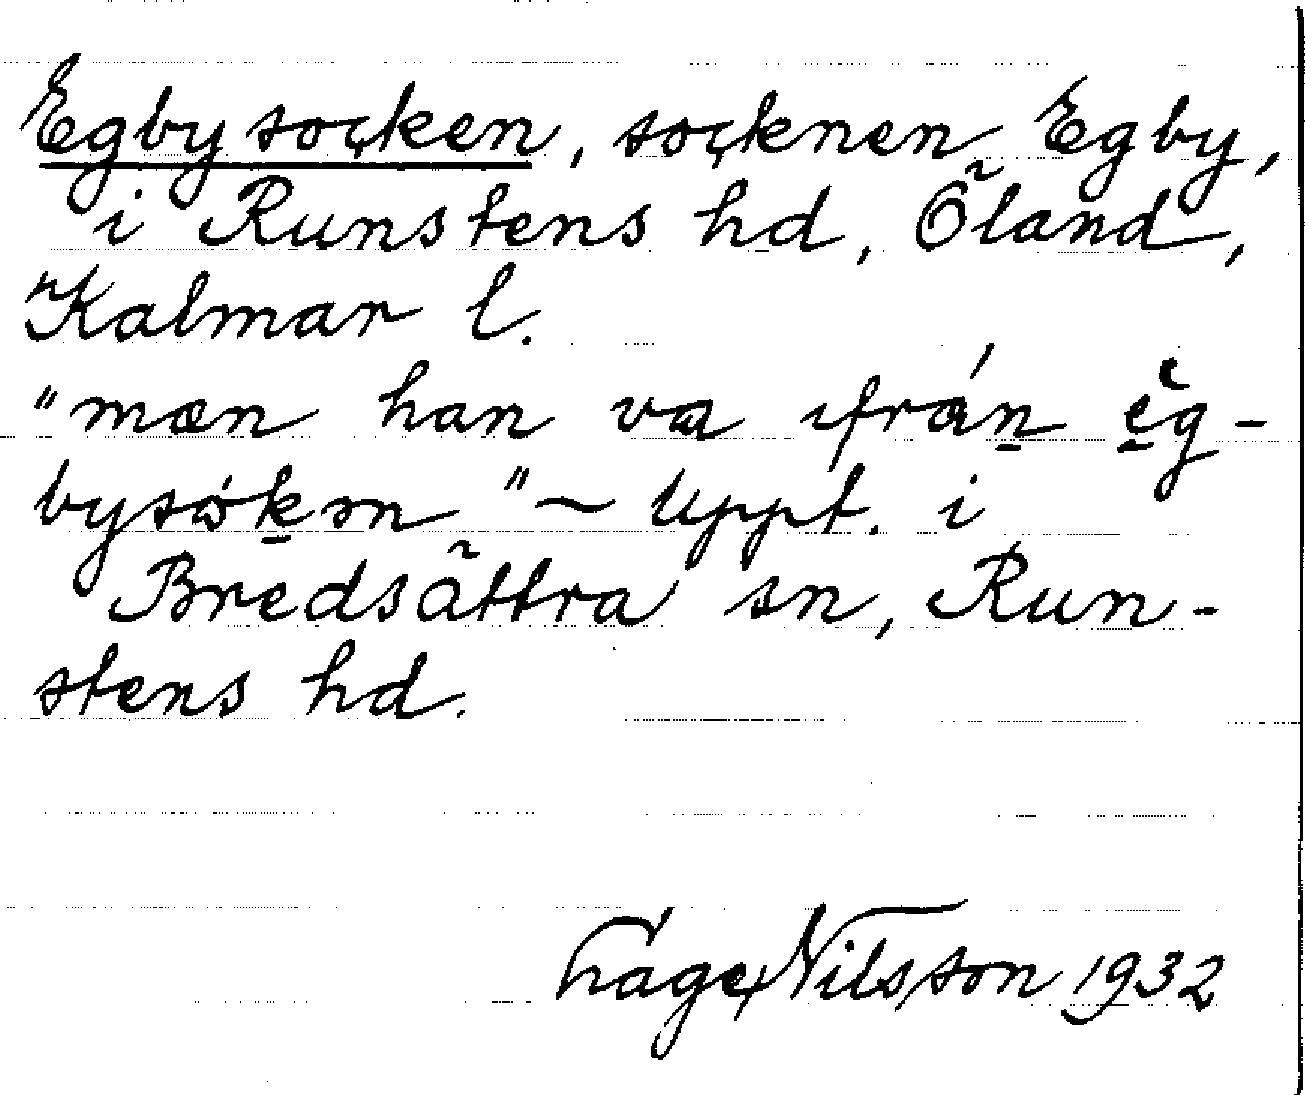 Egby socken, socknen Egby,
i Runstens hd, Öland,
Kalmar l.
"mæn han va ifrån èg-
bysókən" ~ Uppt. i
Bredsättra sn, Run-
stens hd.
Tage Nilsson 1932